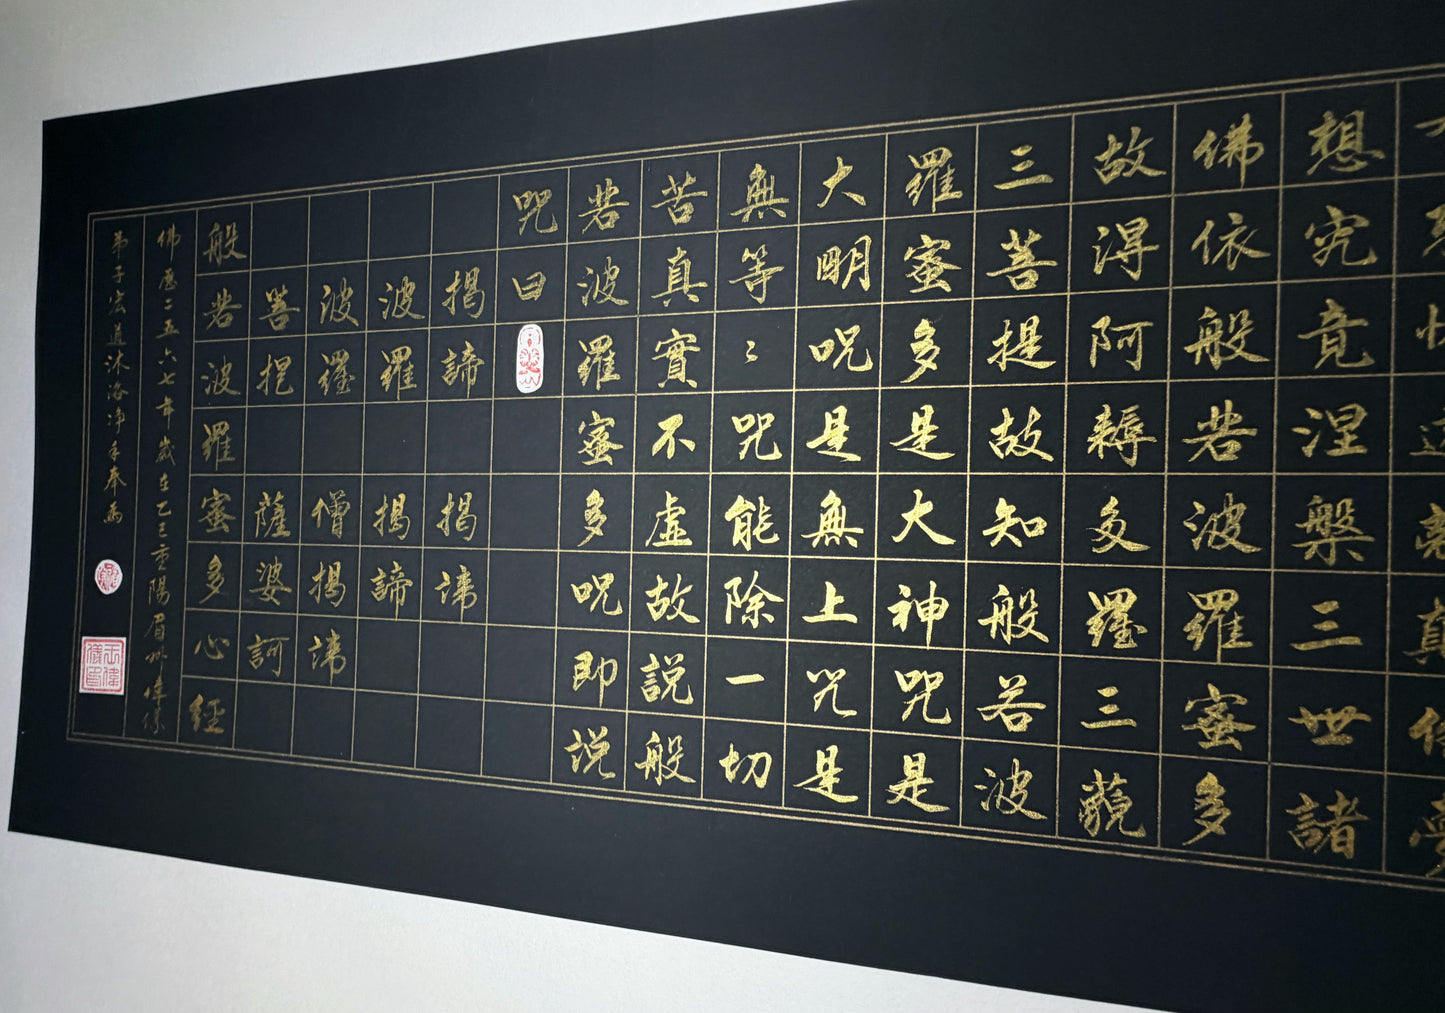 想究竟涅槃三世諸
佛依般若波羅蜜多
故得阿耨多羅三藐
三菩提故知般若波
羅蜜多是大神咒是
大明咒是無上咒是
無等〻咒能除一切
苦真實不虛故說般
若波羅蜜多咒即說
咒曰
揭諦揭諦
波羅揭諦
波羅僧揭諦
菩提薩婆訶
般若波羅蜜多心經
佛曆二五六七年歲在乙巳重陽眉州偉儀
弟子宏道沐浴淨手奉為